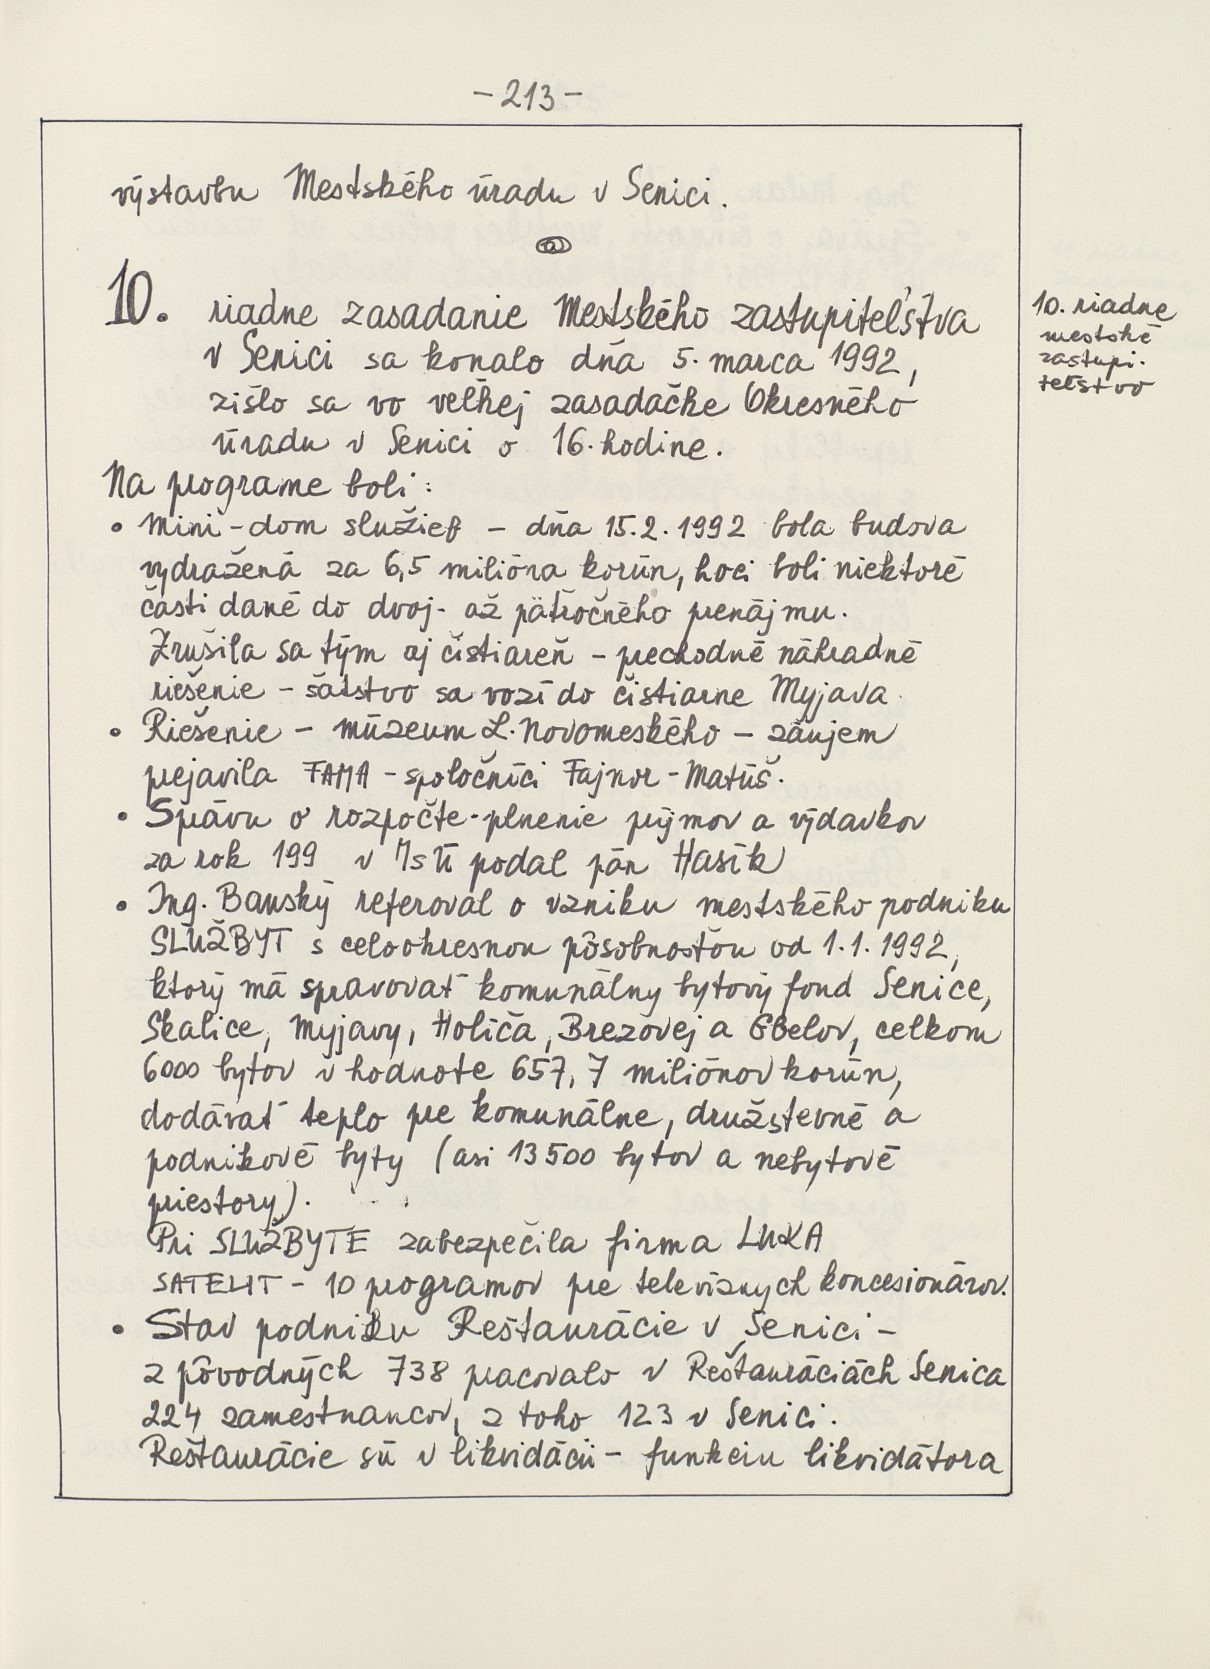 - 213 -
výstavbu Mestského úradu v Senici.
10. riadne zasadanie Mestského zastupiteľstva
v Senici sa konalo dňa 5. marca 1992,
zišlo sa vo veľkej zasadačke Okresného
úradu v Senici o 16. hodine.
10. riadne
mestské
zastupi-
teľstvo
Na programe boli:
• Mini-dom služieb - dňa 15.2.1992 bola budova
vydražená za 6,5 milióna korún, hoci boli niektoré
časti dané do dvoj- až päťročného prenájmu.
Zrušila sa tým aj čistiareň - prechodné náhradné
riešenie - šatstvo sa vozí do čistiarne Myjava.
• Riešenie - múzeum L. Novomeského - záujem
prejavila FAMA - spoločníci Fajnor - Matúš.
• Správu o rozpočte - plnenie príjmov a výdavkov
za rok 199 v MsÚ podal pán Hasík
• Ing. Banský referoval o vzniku mestského podniku
SLUŽBYT s celookresnou pôsobnosťou od 1.1.1992,
ktorý má spravovať komunálny bytový fond Senice,
Skalice, Myjavy, Holíča, Brezovej a Gbelov, celkom
6000 bytov v hodnote 657,7 miliónov korún,
dodávať teplo pre komunálne, družstevné a
podnikové byty (asi 13500 bytov a nebytové
priestory).
Pri SLUŽBYTE zabezpečila firma LUKA
SATELIT - 10 programov pre televíznych koncesionárov.
• Stav podniku Reštaurácie v Senici -
z pôvodných 738 pracovalo v Reštauráciách Senica
224 zamestnancov, z toho 123 v Senici.
Reštaurácie sú v likvidácii - funkciu likvidátora